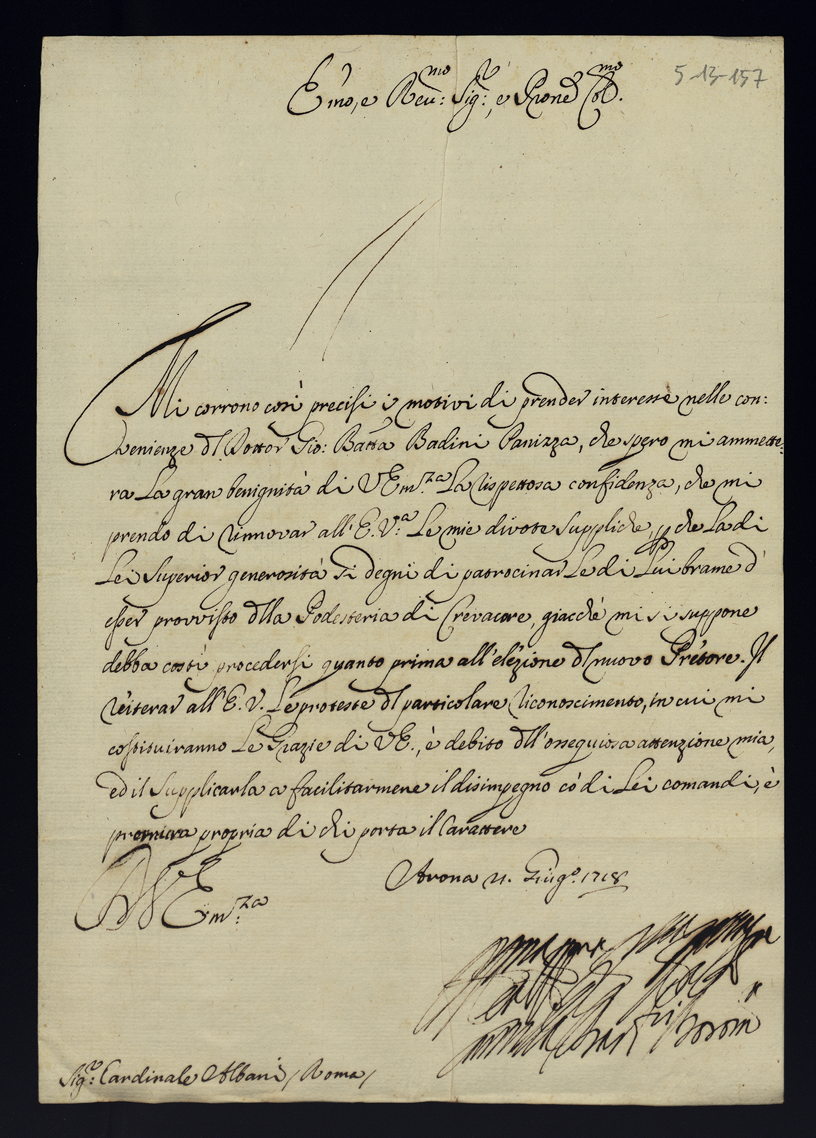 5-13-157
Emo, e Reu:mo Sig:r, e Prone Col:mo
Mi corrono così precisi i motivi di prender interesse nelle con:
venienze dl Dottor Gio: Batta Badini Panizza, che spero mi ammette:
ra La gran benignità di V Em:za La rispettosa confidenza, che mi
prendo di rinnovar all'E.V.a Le mie divote Suppliche, che La di
Lei Superior generosità si degni di patrocinar Le di Lui brame d'
esser provvisto dlla Podesteria di Crevacore, giacchè mi si suppone
debba costì procedersi quanto prima all'elezione dl nuovo Prêtore. Il
reiterar all'E.V. Le proteste dl particolare riconoscimento, in cui mi
costituiranno Le Grazie di VE., è debito dll'ossequiosa attenzione mia,
ed il Supplicarla a facilitarmene il disimpegno co' di Lei comandi, è
premura propria di chi porta il Carattere
D V Em:za
Arona 21. Giug.o 1718
Sig:r Cardinale Albani / Roma /